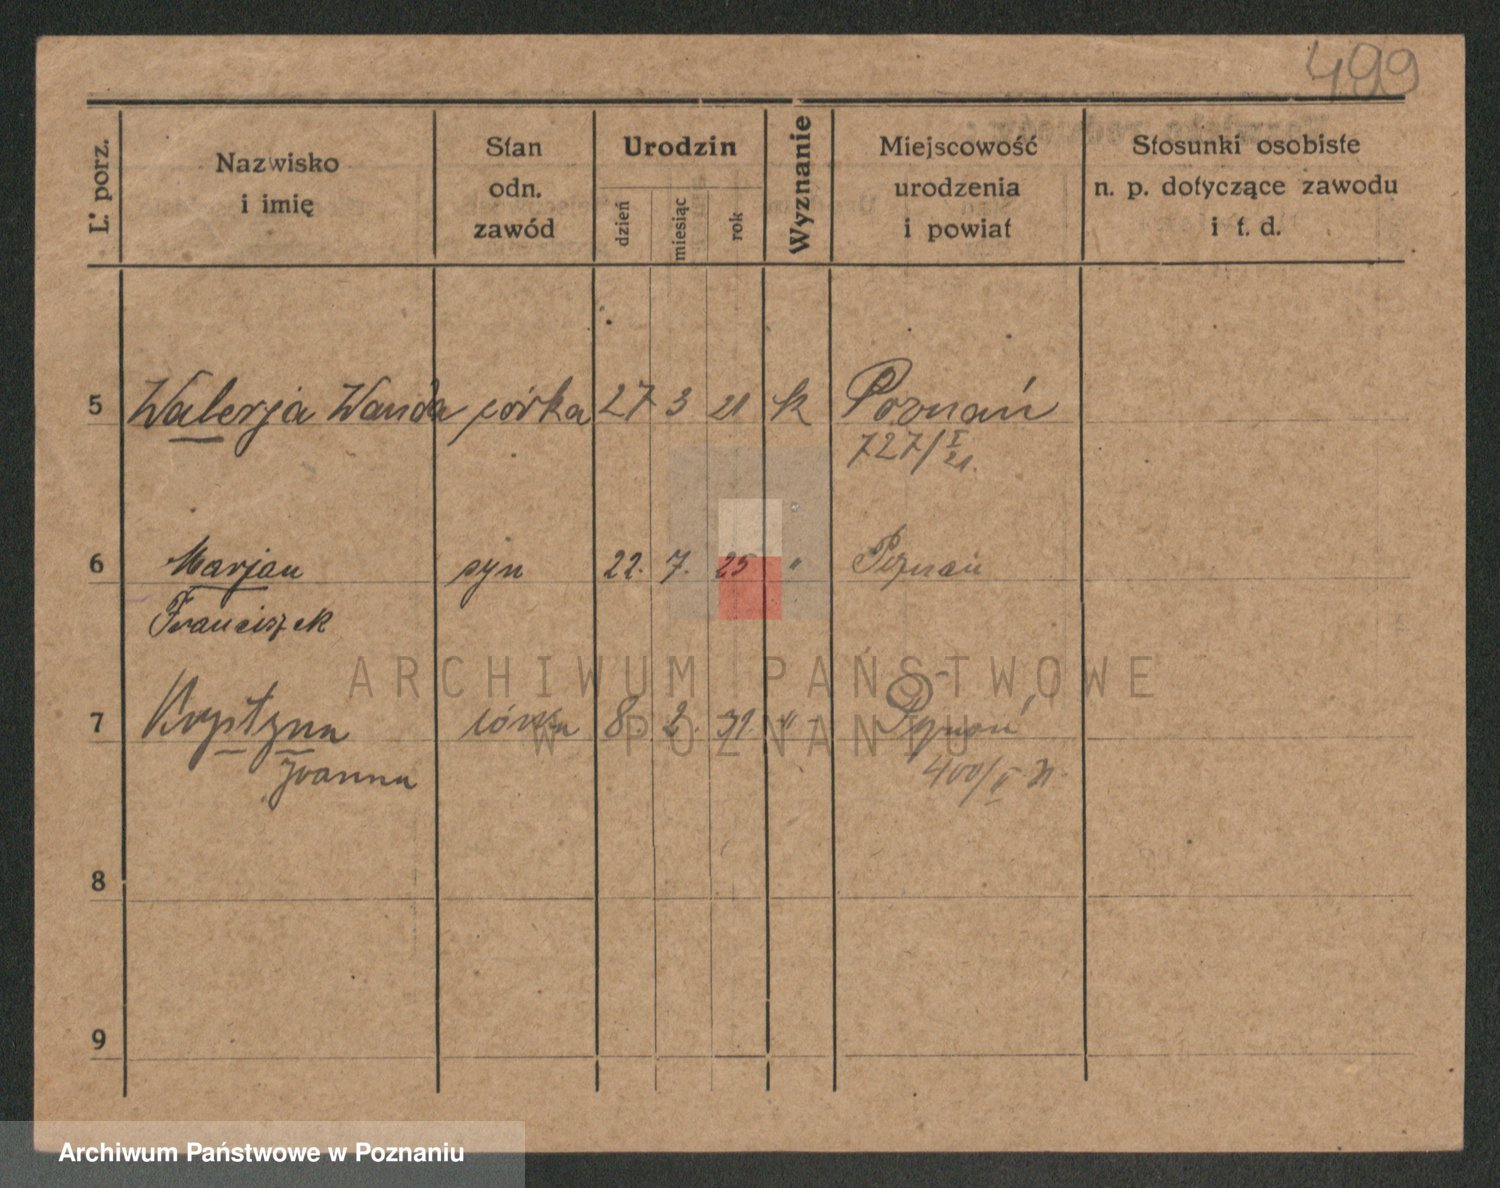 499
L. porz.
Nazwisko
i imię
Stan
odn.
zawód
Urodzin
dzień
miesiąc
rok
Wyznanie
Miejscowość
urodzenia
i powiat
Stosunki osobiste
n. p. dotyczące zawodu
i t. d.
5 Walerja Wanda córka 27 3 21 k Poznań
727/I 21.
6 Marjan syn 22. 7. 25 " Poznań
Franciszek
7 Krystyna córka 8. 2. 31. " Poznań
Joanna 400/II 31.
8
9
ARCHIWUM PAŃSTWOWE
W POZNANIU
Archiwum Państwowe w Poznaniu